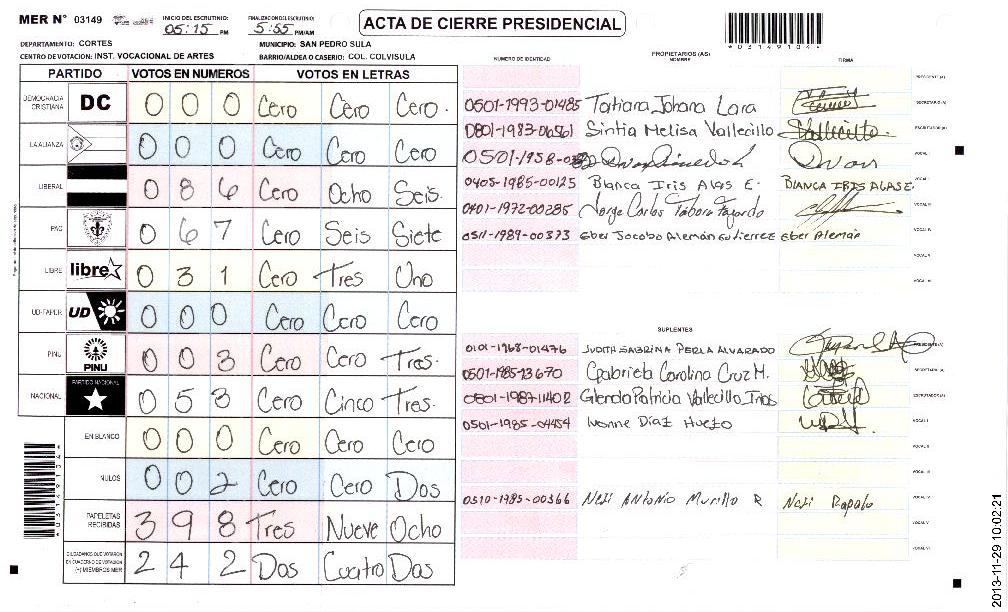 MER N° 03149 INICIO DEL ESCRUTINIO: 05:15 PM FINALIZACION DEL ESCRUTINIO: 5:55 PM/AM ACTA DE CIERRE PRESIDENCIAL
DEPARTAMENTO: CORTES MUNICIPIO: SAN PEDRO SULA
CENTRO DE VOTACION: INST. VOCACIONAL DE ARTES BARRIO/ALDEA O CASERIO: COL. COLVISULA
PARTIDO VOTOS EN NUMEROS VOTOS EN LETRAS
DEMOCRACIA CRISTIANA DC 0 0 0 Cero Cero Cero.
LA ALIANZA 0 0 0 Cero Cero Cero
LIBERAL 0 8 6 Cero Ocho Seis.
PAC 0 6 7 Cero Seis Siete
LIBRE libre 0 3 1 Cero Tres Uno
UD-FAPER UD 0 0 0 Cero Cero Cero
PINU PINU 0 0 3 Cero Cero Tres.
NACIONAL PARTIDO NACIONAL 0 5 3 Cero Cinco Tres.
EN BLANCO 0 0 0 Cero Cero Cero
NULOS 0 0 2 Cero Cero Dos
PAPELETAS RECIBIDAS 3 9 8 Tres Nueve Ocho
CIUDADANOS QUE VOTARON EN CUADERNO DE VOTACION (+) MIEMBROS MER 2 4 2 Dos Cuatro Dos
PROPIETARIOS (AS)
NUMERO DE IDENTIDAD NOMBRE FIRMA
PRESIDENTE (A)
0501-1993-01485 Tatiana Johana Lara SECRETARIO (A)
0801-1983-06561 Sintia Melisa Vallecillo Vallecillo ESCRUTADOR (A)
0501-1958- VOCAL I
0405-1985-00125 Blanca Iris Alas E. BLANCA IRIS ALAS E. VOCAL II
0401-1972-00285 Jorge Carlos Tábora Fajardo VOCAL III
0511-1989-00373 Eber Jocobo Alemán Gutierrez Eber Alemán VOCAL IV
VOCAL V
VOCAL VI
SUPLENTES
0101-1968-01476 JUDITH SABRINA PERLA ALVARADO PRESIDENTE (A)
0501-1985-13670 Gabriela Carolina Cruz M. SECRETARIO (A)
0801-1987-11402 Glenda Patricia Vallecillo Irias ESCRUTADOR (A)
0501-1985-04454 Ivonne Díaz Hueto VOCAL I
VOCAL II
VOCAL III
0510-1985-00366 Neli Antonio Murillo R Neli Rapalo VOCAL IV
VOCAL V
VOCAL VI
2013-11-29 10:02:21